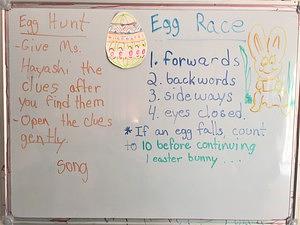 Egg Hunt
- Give Ms.
Hayashi the
clues after
you find them
- Open the clues
gently.
Song
Egg Race
1. forwards
2. backwords
3. sideways
4. eyes closed.
* If an egg falls, count
to 10 before continuing
1 easter bunny...